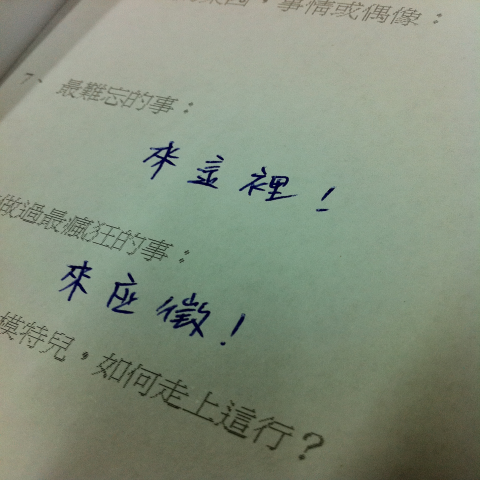 事情或偶像：
7、最難忘的事：
來這裡！
做過最瘋狂的事：
來应徵！
模特兒，如何走上這行？